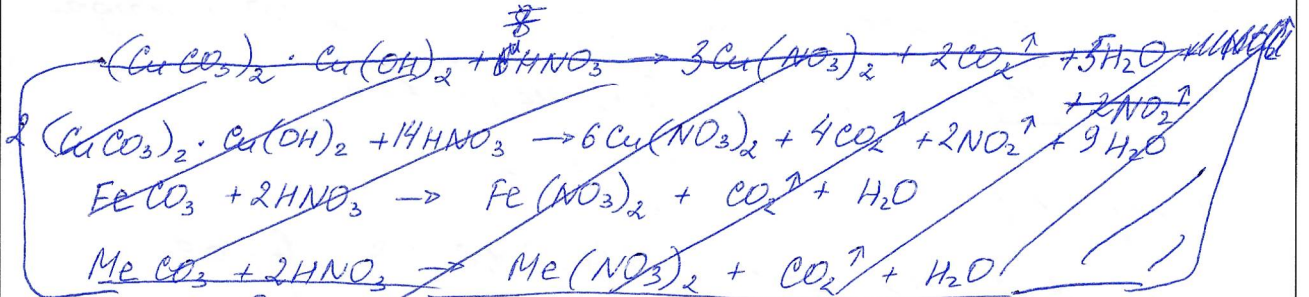 (CuCO₃)₂ · Cu(OH)₂ + HNO₃ → 3Cu(NO₃)₂ + 2CO₂↑ + 5H₂O
+ 2NO₂↑
2 (CuCO₃)₂ · Cu(OH)₂ + 14HNO₃ → 6Cu(NO₃)₂ + 4CO₂↑ + 2NO₂↑ + 9H₂O
FeCO₃ + 2HNO₃ → Fe(NO₃)₂ + CO₂↑ + H₂O
MeCO₃ + 2HNO₃ → Me(NO₃)₂ + CO₂↑ + H₂O